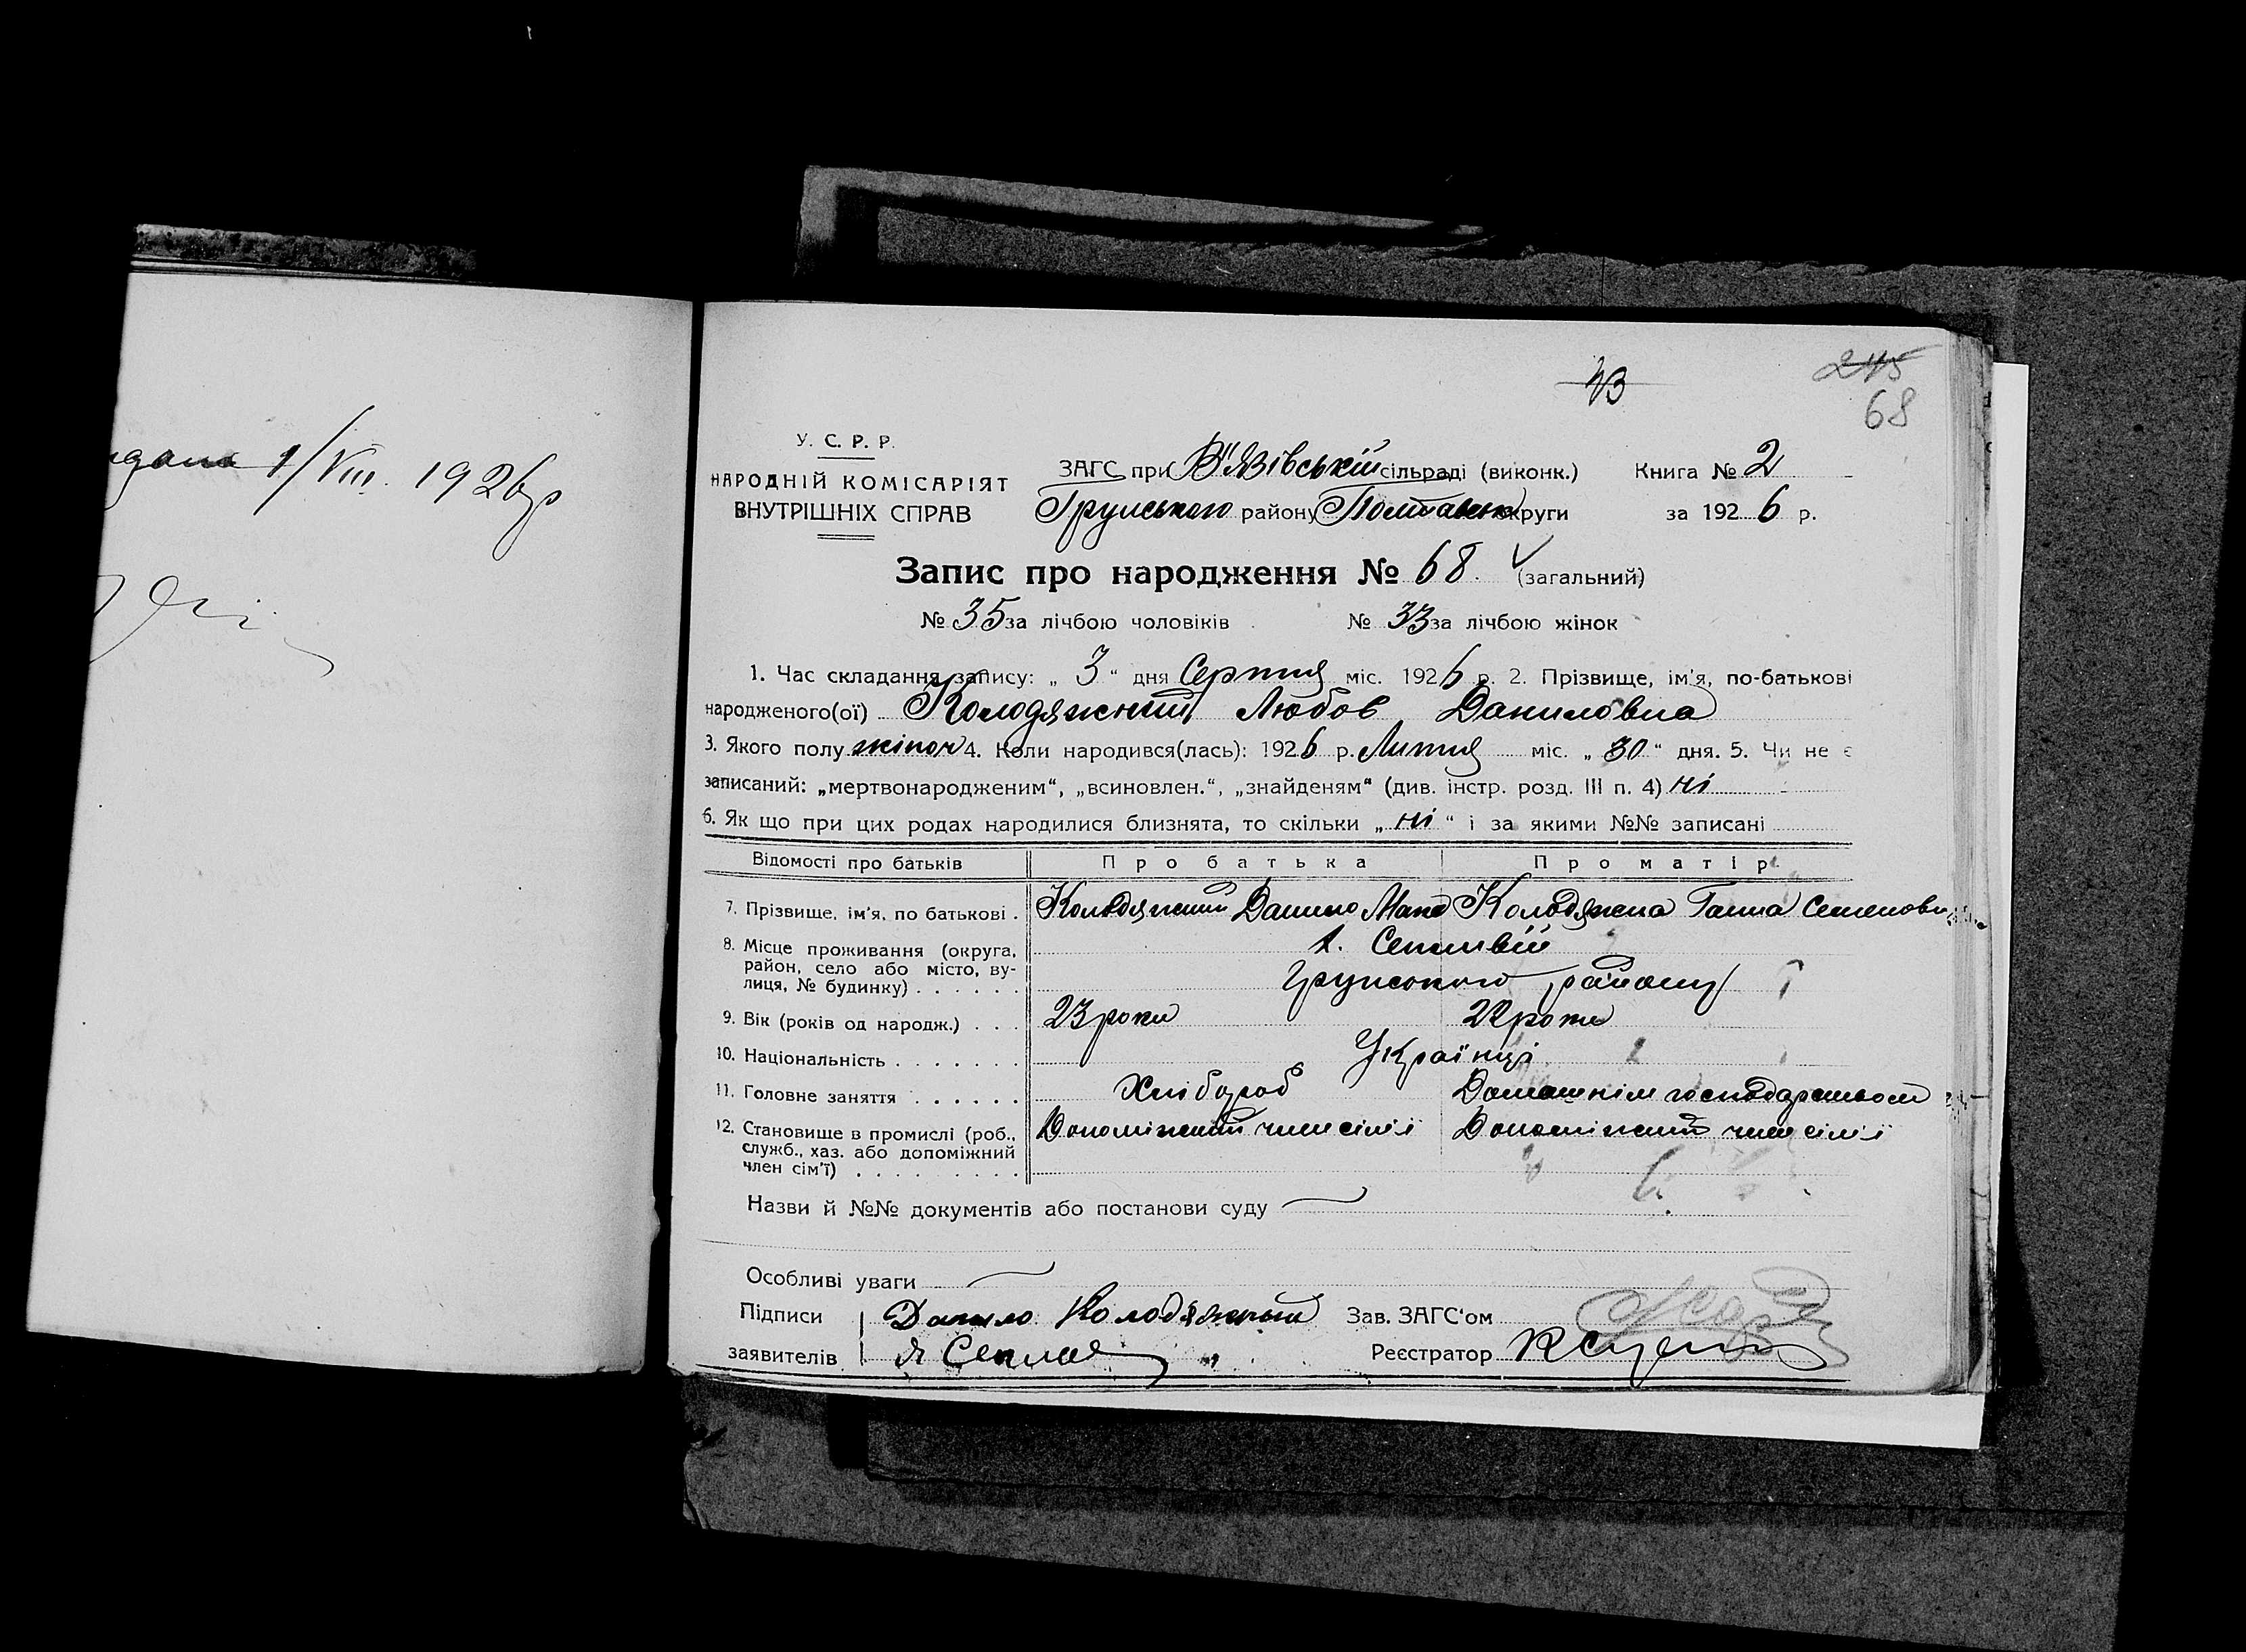 1/VIII. 1926р
43
245
68
У. С. Р. Р.
НАРОДНІЙ КОМІСАРІЯТ
ВНУТРІШНІХ СПРАВ
ЗАГС при В'язівській сільраді (виконк.) Книга № 2
Грунського району Полтавськ округи за 1926 р.
Запис про народження № 68. (загальний)
№ 35 за лічбою чоловіків № 33 за лічбою жінок
1. Час складання запису: „ 3 “ дня Серпня міс. 1926 р. 2. Прізвище, ім'я, по-батькові
народженого(ої) Колодяжний Любов Даниловна
3. Якого полу жіноч 4. Коли народився(лась): 1926 р. Липня міс. „ 30 “ дня. 5. Чи не є
записаний: „мертвонародженим“, „всиновлен.“, „знайденям“ (див. інстр. розд. III п. 4) ні
6. Як що при цих родах народилися близнята, то скільки „ ні “ і за якими №№ записані
Відомості про батьків Про батька Про матір
7. Прізвище, ім'я, по батькові . Колодяжний Данило Колодяжна Ганна Семеновн
8. Місце проживання (округа,
район, село або місто, ву-
лиця, № будинку) . . . . . .
Грунського району
9. Вік (років од народж.) . . . 23 роки 22 роки
10. Національність . . . . . . . Українці
11. Головне заняття . . . . . . Хлібороб Домашнім господарством
12. Становище в промислі (роб., Допоміжний член сім'ї Допоміжний член сім'ї
служб., хаз. або допоміжний
член сім'ї) . . . . . . . . .
Назви й №№ документів або постанови суду
Особливі уваги
Підписи Данило Колодяжный Зав. ЗАГС'ом
заявителів Реєстратор